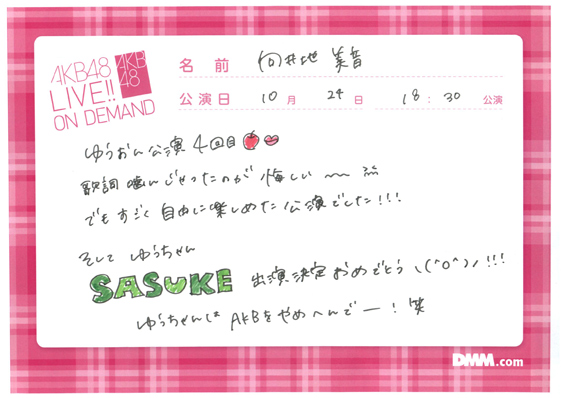 AKB48
LIVE!!
ON DEMAND
AKB
48
名前 向井地 美音
公演日 10月 24日 18:30 公演
ゆうおん公演 4回目
歌詞噛んじゃったのが悔しい 〜〜
でもすごく自由に楽しめた公演でした!!!
そして ゆうちゃん
SASUKE 出演決定おめでとう \(^o^)/!!!
ゆうちゃんは AKBをやめへんでー!笑
DMM.com